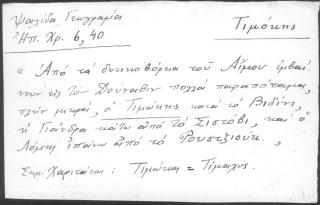 Ψαλίδα, Γεωγραφία
Ἠπ. Χρ. 6, 40
Τιμόκης
« Ἀπὸ τὰ δυτικοβόρεια τοῦ Αἵμου ἐμβαί
νουν εἰς τὸν Δούναβιν πολλὰ παραπόταμια,
πλὴν μικρά, ὁ Τιμώκης κατὰ τὸ Βιδίνι,
κ' ἡ Γιάντρα κάτω ἀπὸ τὸ Σιστόβι, καὶ ὁ
Λόμης ἐπάνω ἀπὸ τὸ Ρουστζιούκ »
Σημ. Χαριτάκη : Τιμώκης = Τίμαχος.